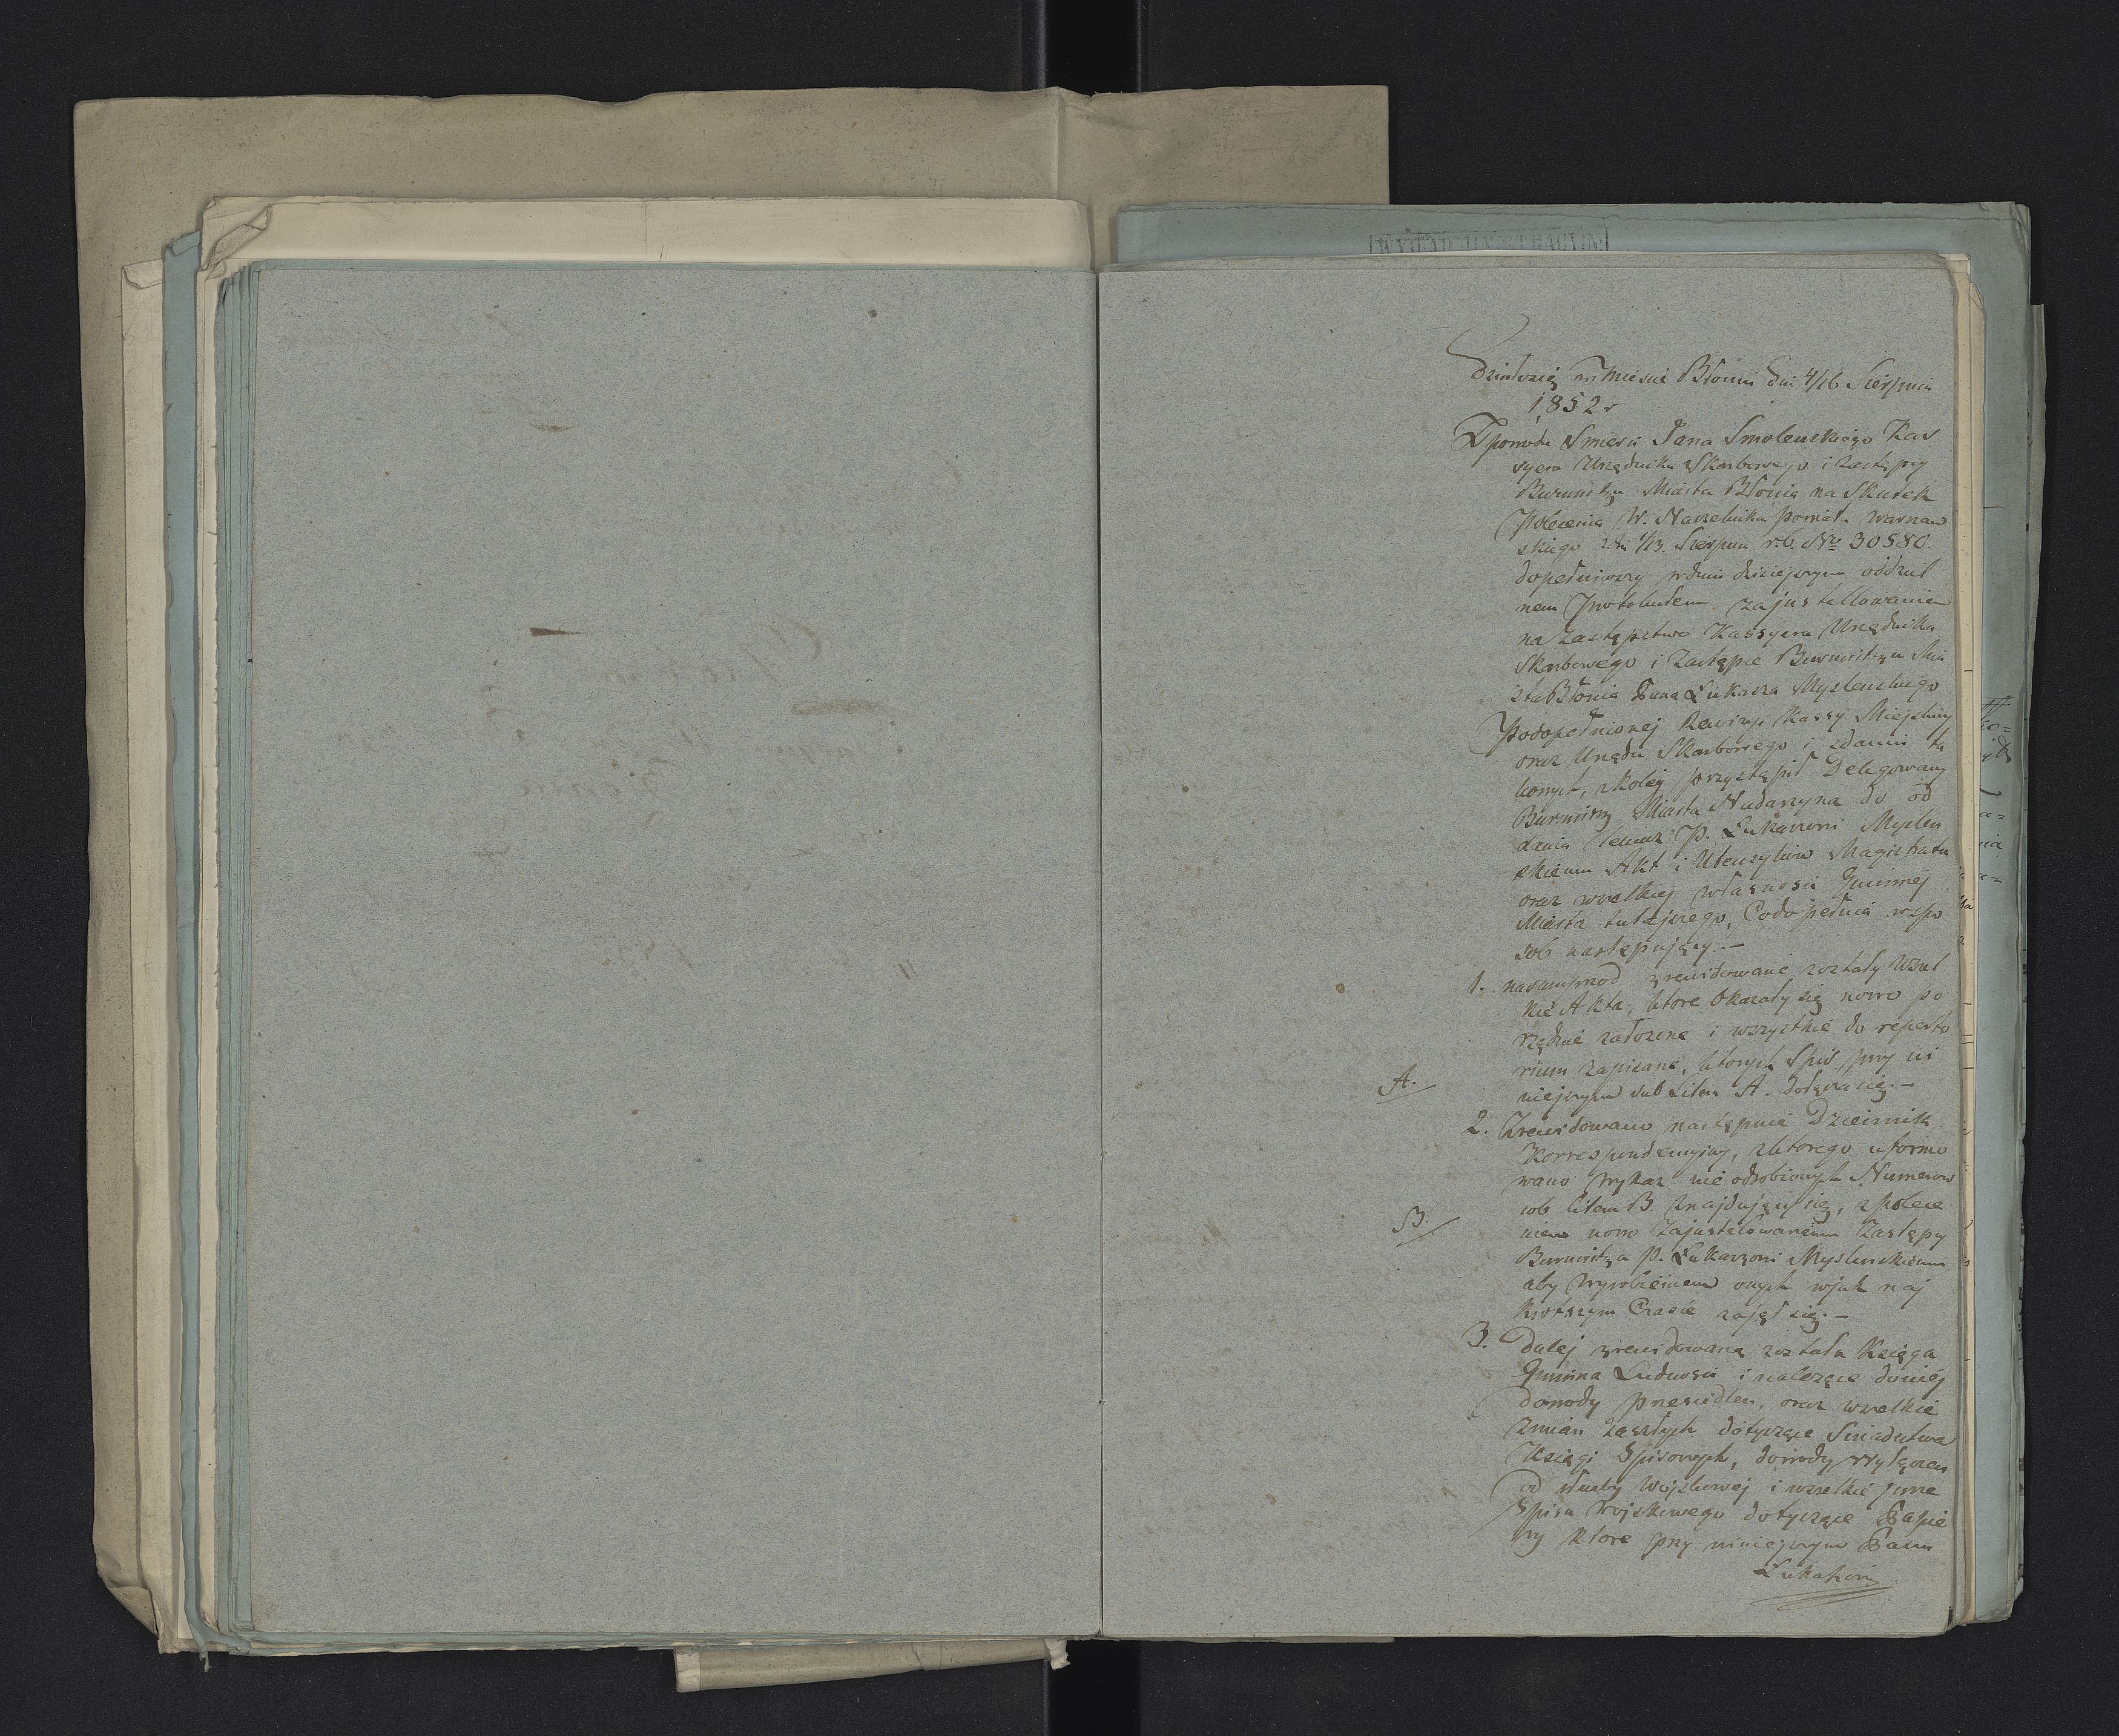 Działo się w Mieście Błoniu dni 4/16 Sierpnia
1852 r
Z powodu Śmierci Jana Smolenskiego Kas
syera Urzędnika Skarbowego i Zastępcy
Burmistrza Miasta Błonia na Skutek
Polecenia W. Naczelnika Powiatu Warszaw
skiego z dni 1/13. Sierpnia r. b. No 30580.
dopełniwszy w dniu dzisiejszym oddziel
nem Protokułem zajnstellowanie
na Zastępstwo Kassyera Urzędnika
Skarbowego i Zastępcę Burmistrza Mia
sta Błonia Pana Łukasza Myslenskiego
Po dopełnionej Rewizyi Kassy Miejskiej
oraz Urzędu Skarbowego i zdaniu ta
kowych, z kolej przystąpił Delegowany
Burmistrz Miasta Nadarzyna do od
dania temuż P. Łukaszowi Myslen
skiemu Akt i Utensyliów Magistratu
oraz wszelkiej własności Gminnej
Miasta tutejszego, Co dopełnia w spo
sob następujący. —
1. nasamprzod zrewidowane zostały Wszel
kie Akta, ktore Okazały się nowo po
rządnie założone i wszystkie do reperto
rium zapisane, ktorych Spis przy ni
A.
niejszym sub Litera A. dołącza się. —
2. Zrewidowano następnie Dziennik
Korrespondencyjny, z ktorego uformo
wano Wykaz nie odrobionych Numerow
sub litera B. znajdujący się, z polece
B.
niem nowo Zajnstelowanemu Zastępcy
Burmistrza P. Łukaszowi Myslenskiemu
aby Wyrobieniem onych w jak naj
krotszym Czasie zajął się. —
3. Dalej zrewidowaną została Księga
Gminna Ludności i należące do niej
dowody przesiedleń, oraz wszelkie
zmian zaszłych dotyczące Swiadectwa
Księgi Spisowych, dowody wyłączeń
od służby Wojskowej i wszelkie jnne
Spisu Wojskowego dotyczące Papie
ry ktore przy niniejszym Panu
Łukaszowi